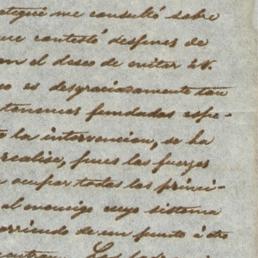 me consultó sobre
que contestó despues de
el deseo de evitar EV.
es desgraciadamente tan
tenemos fundadas espe-
la intervencion, se ha
realise, pues las fuerzas
ocupar todas las princi-
al enemigo cuyo sistema
corriendo de un punto á otro